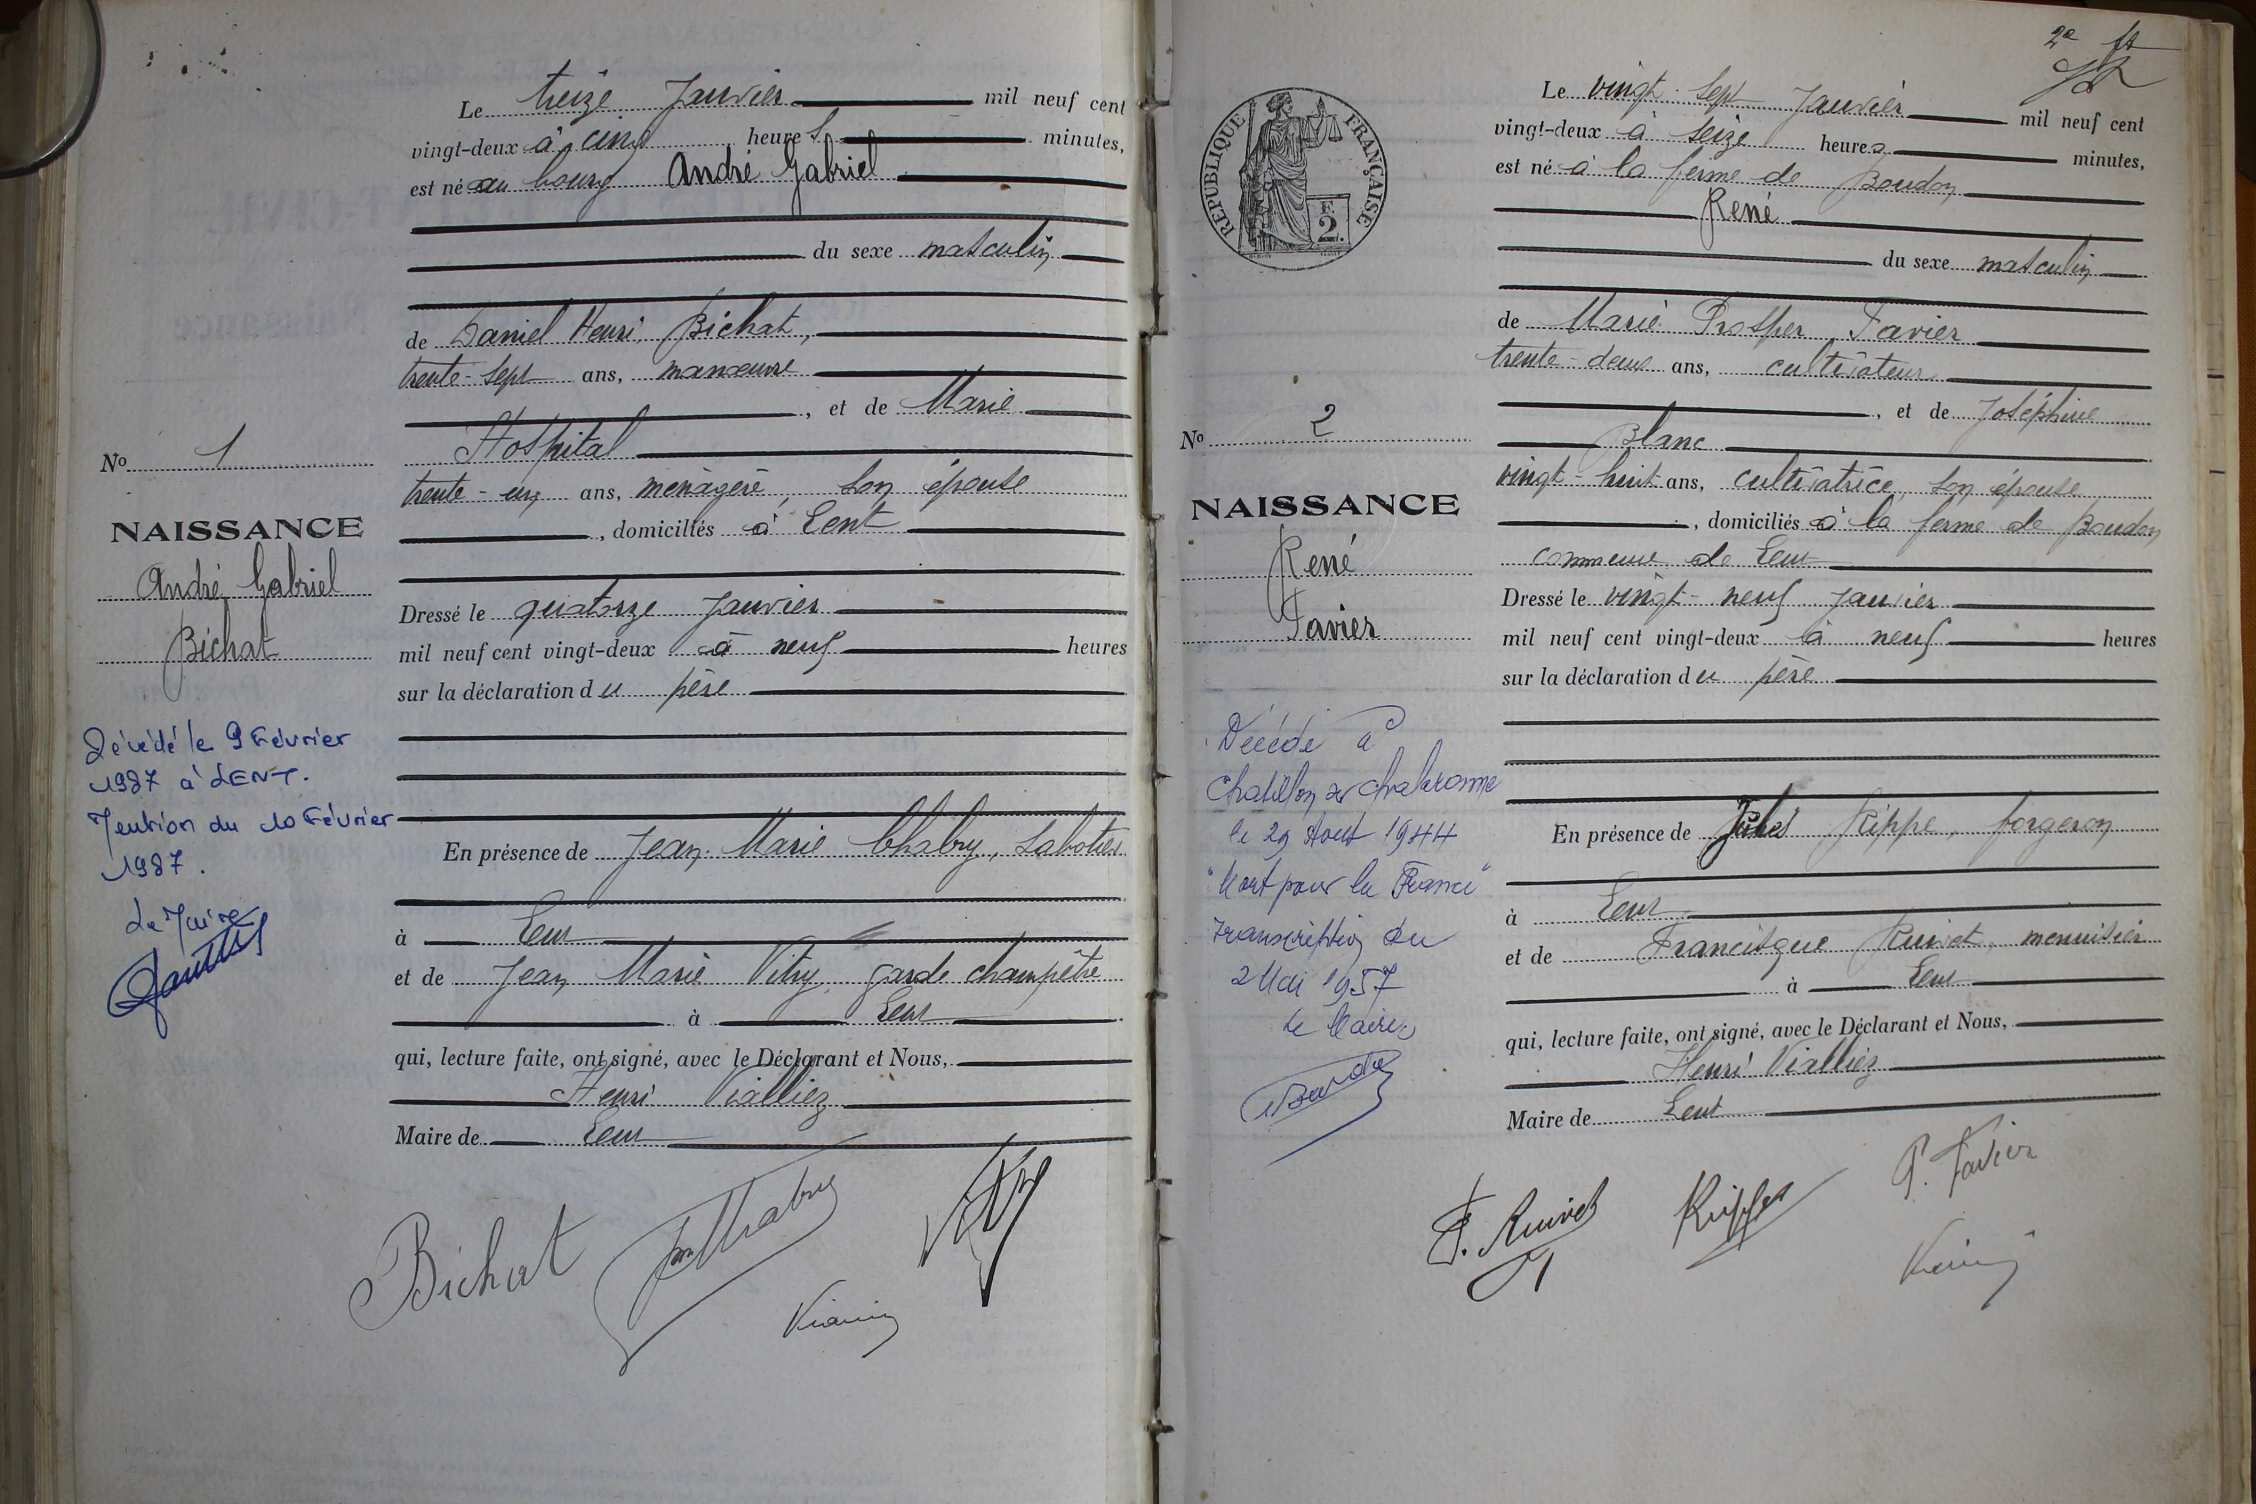 Le treize Janvier mil neuf cent
vingt-deux à cinq heures minutes,
est né au bourg André Gabriel
du sexe masculin
de Daniel Henri Bichat,
trente-sept ans, manœuvre
, et de Marie
Hospital
trente-un ans, ménagère, son épouse
, domiciliés à Lent
Dressé le quatorze Janvier
mil neuf cent vingt-deux à neuf heures
sur la déclaration du père
En présence de Jean-Marie Chabry, sabotier
à Lent
et de Jean Marie Vitry, garde champêtre
à Lent
qui, lecture faite, ont signé, avec le Déclarant et Nous,
Henri Vialliez
Maire de Lent
No 1
NAISSANCE
André Gabriel
Bichat
Décédé le 9 Février
1987 à LENT.
Mention du 10 Février
1987.
Le Maire
Bichat
JM Chabry
Vitry
2e
Le vingt-sept Janvier mil neuf cent
vingt-deux à seize heures minutes,
est né à la ferme de Boudon
René
du sexe masculin
de Marie Prosper Favier
trente-deux ans, cultivateur
, et de Joséphine
Blanc
vingt-huit ans, cultivatrice, son épouse
, domiciliés à la ferme de Boudon
commune de Lent
Dressé le vingt-neuf Janvier
mil neuf cent vingt-deux à neuf heures
sur la déclaration du père
En présence de Jules Rippe, forgeron
à Lent
et de Francisque Ruivet, menuisier
à Lent
qui, lecture faite, ont signé, avec le Déclarant et Nous,
Henri Vialliez
Maire de Lent
RÉPUBLIQUE FRANÇAISE
F.
2.
No 2
NAISSANCE
René
Favier
Décédé à
Chatillon sr Chalaronne
le 29 Août 1944
"Mort pour la France"
Transcription du
2 Mai 1957
Le Maire,
F. Ruivet
Rippe
P. Favier